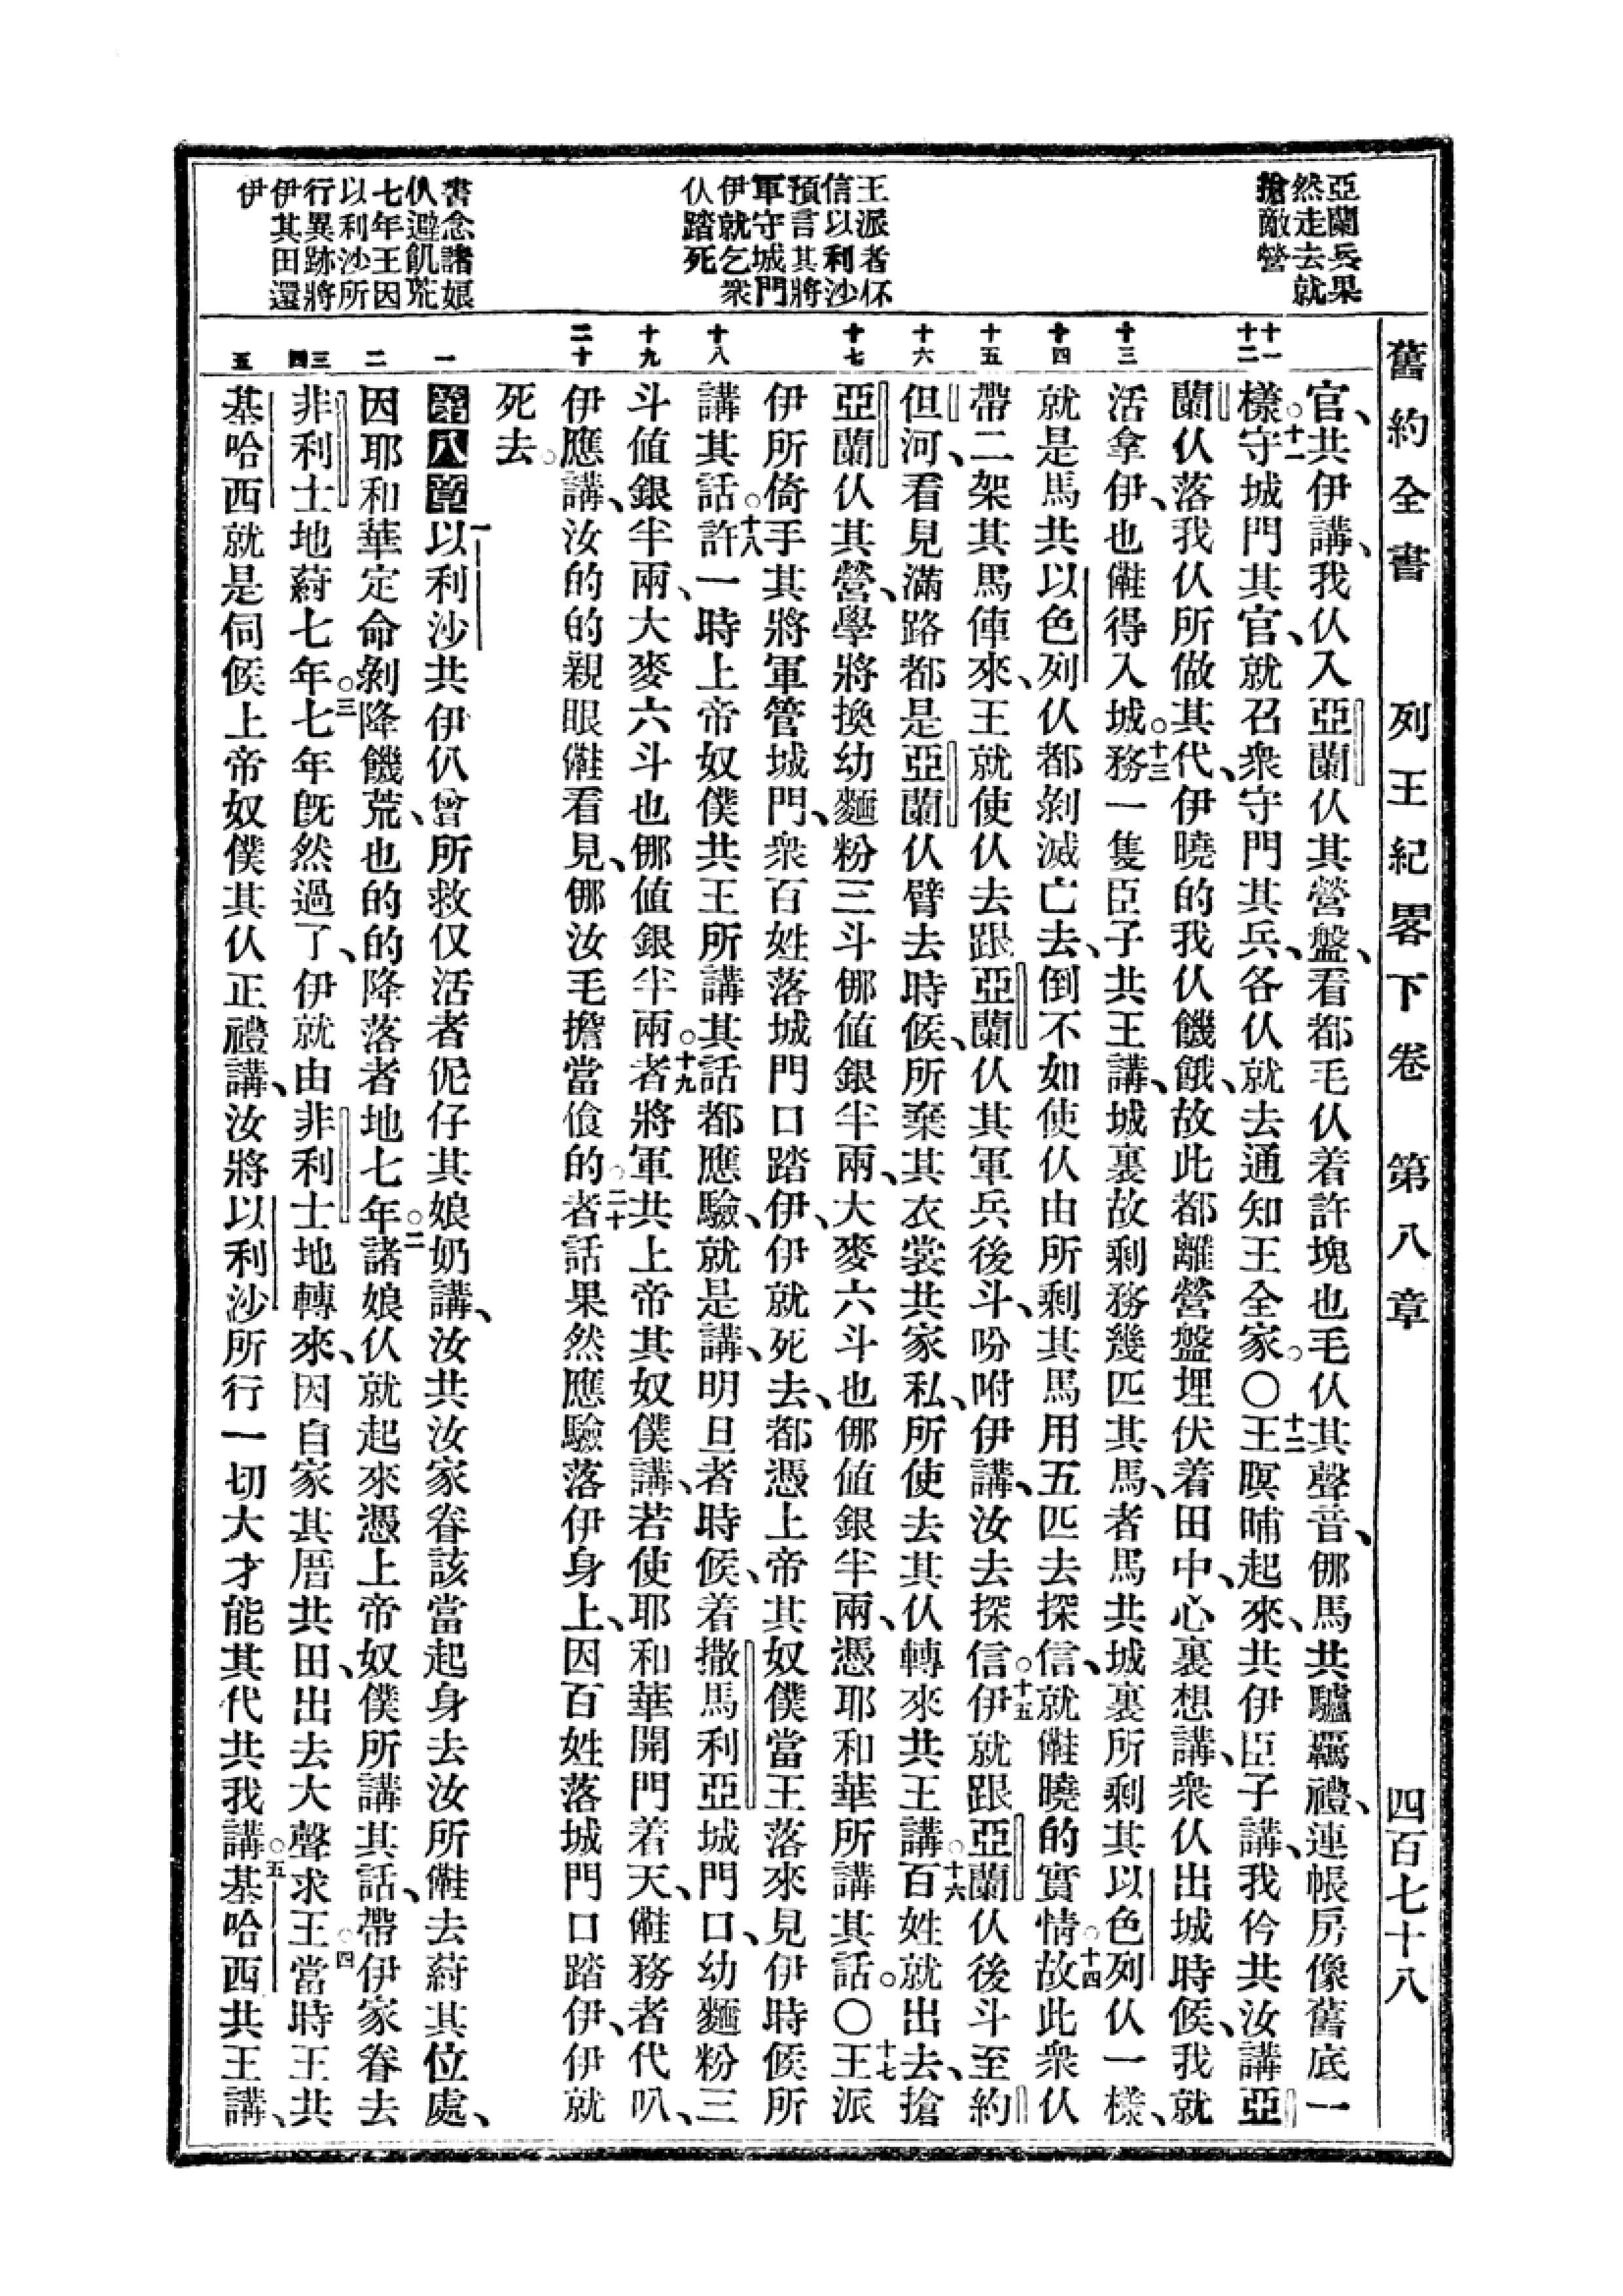 舊約全書 列王紀畧下卷 第八章 四百七十八
亞蘭兵果
然走去就
搶敵營
王派者伓
信以利沙
預言其將
軍守城門
伊就乞衆
仈踏死
書念諸娘
仈避飢荒
七年王因
以利沙所
行異跡將
伊其田還
伊
十一
十二
十三
十四
十五
十六
十七
十八
十九
二十
一
二
三
四
五
官、共伊講、我仈入亞蘭仈其營盤、看都毛仈着許塊也毛仈其聲音、㑚馬共驢羈禮、連帳房像舊底一
樣。十一守城門其官、就召衆守門其兵、各仈就去通知王全家。〇十二王暝晡起來、共伊臣子講、我仱共汝講亞
蘭仈落我仈所做其代、伊曉的我仈饑餓、故此都離營盤埋伏着田中、心裏想講、衆仈出城時候、我就
活拿伊、也𣍐得入城。十三務一隻臣子共王講、城裏故剩務幾匹其馬、者馬共城裏所剩其以色列仈一樣、
就是馬共以色列仈都剝滅亡去、倒不如使仈由所剩其馬用五匹去探信、就𣍐曉的實情。十四故此衆仈
帶二架其馬俥來、王就使仈去跟亞蘭仈其軍兵後斗、吩咐伊講、汝去探信。十五伊就跟亞蘭仈後斗至約
但河、看見滿路都是亞蘭仈臂去時候、所棄其衣裳共家私、所使去其仈轉來共王講。十六百姓就出去、搶
亞蘭仈其營、學將換幼麵粉三斗㑚値銀半兩、大麥六斗也㑚値銀半兩、憑耶和華所講其話。〇十七王派
伊所倚手其將軍管城門、衆百姓落城門口踏伊、伊就死去、都憑上帝其奴僕當王落來見伊時候所
講其話。十八許一時上帝奴僕共王所講其話都應驗、就是講、明旦者時候、着撒馬利亞城門口、幼麵粉三
斗値銀半兩、大麥六斗也㑚値銀半兩。十九者將軍共上帝其奴僕講、若使耶和華開門着天、𣍐務者代叭、
伊應講、汝的的親眼𣍐看見、㑚汝毛擔當飠的。二十者話果然應驗落伊身上、因百姓落城門口踏伊、伊就
死去。
第八章 一以利沙共伊仈曾所救伩活者伲仔其娘奶講、汝共汝家眷該當起身去汝所𣍐去蔚其位處、
因耶和華定命剝降饑荒、也的的降落者地七年。二諸娘仈就起來憑上帝奴僕所講其話、帶伊家眷去
非利士地蔚七年。三七年旣然過了、伊就由非利士地轉來、因自家其厝共田、出去大聲求王。四當時王共
基哈西就是伺候上帝奴僕其仈正禮講、汝將以利沙所行一切大才能其代共我講。五基哈西共王講、